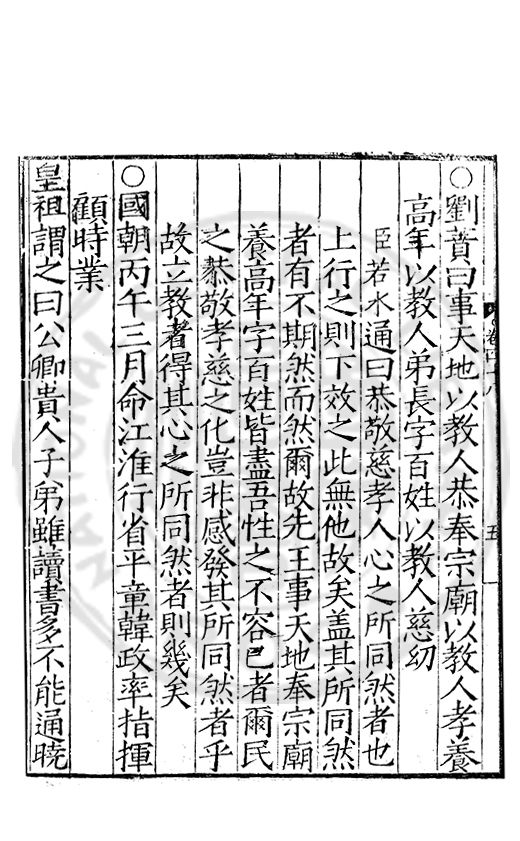 ○劉蕡曰事天地以教人恭奉宗廟以教人孝養
高年以教人弟長字百姓以教人慈幼
臣若水通曰恭敬慈孝人心之所同然者也
上行之則下效之此無他故矣盖其所同然
者有不期然而然爾故先王事天地奉宗廟
養高年字百姓皆盡吾性之不容已者爾民
之恭敬孝慈之化豈非感發其所同然者乎
故立教者得其心之所同然者則幾矣
○國朝丙午三月命江淮行省平章韓政率指揮
顧時業
皇祖謂之曰公卿貴人子弟雖讀書多不能通曉
五